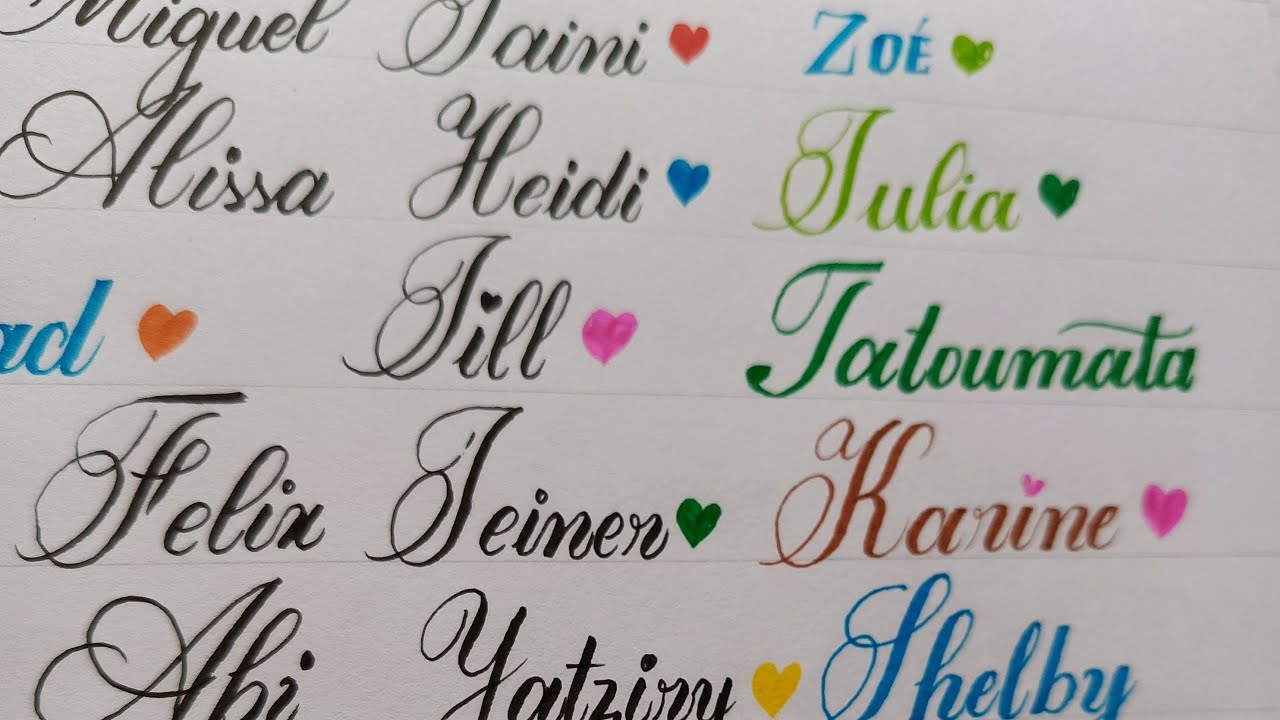 Miguel Jaini Zoé
Alissa Heidi Julia
ad Jill Tatoumata
Felix Jeiner Karine
Abi Yatziry Shelby